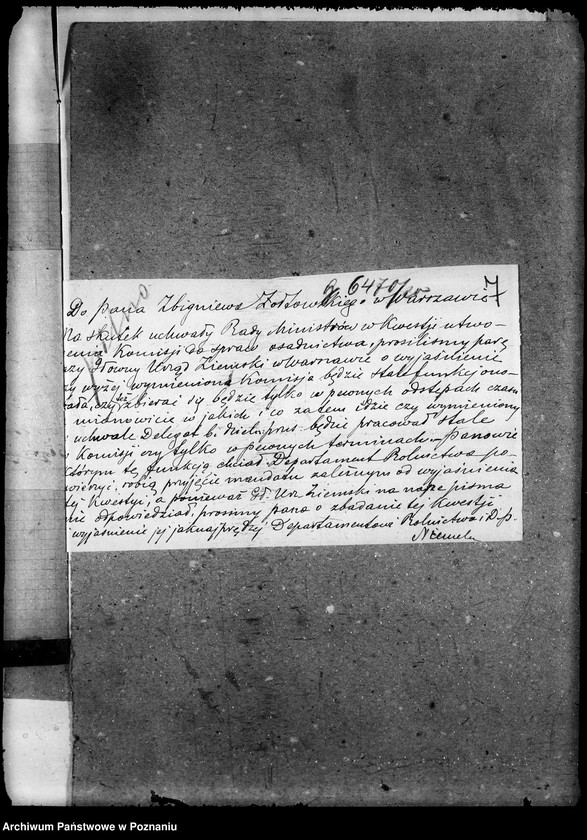 6470/20
7
Do Pana Zbigniewa Żółtowskiego w Warszawie
Na skutek uchwały Rady Ministrów w Kwestji utwo-
enia Komisji do spraw osadnictwa, prosiliśmy parę
azy Główny Urząd Ziemski w Warszawie o wyjaśnienie
zy wyżej wymieniona Komisja będzie stale funkcjono-
ała, czy też zbierać się będzie tylko w pewnych odstępach czasu
mianowicie w jakich i co zatem idzie czy wymieniony
uchwale Delegat b. dzieln. prus. będzie pracował stale
Komisji czy tylko w pewnych terminach. Panowie
którym tę funkcję chciał Departament Rolnictwa po-
wierzyć, robią przyjęcie mandatu zależnym od wyjaśnienia
tej Kwestji, a ponieważ Gł. Urz. Ziemski na nasze pisma
nie odpowiedział, prosimy pana o zbadanie tej Kwestji
wyjaśnienie jej jaknajprędzej Departamentowi Rolnictwa i D.p.
Archiwum Państwowe w Poznaniu